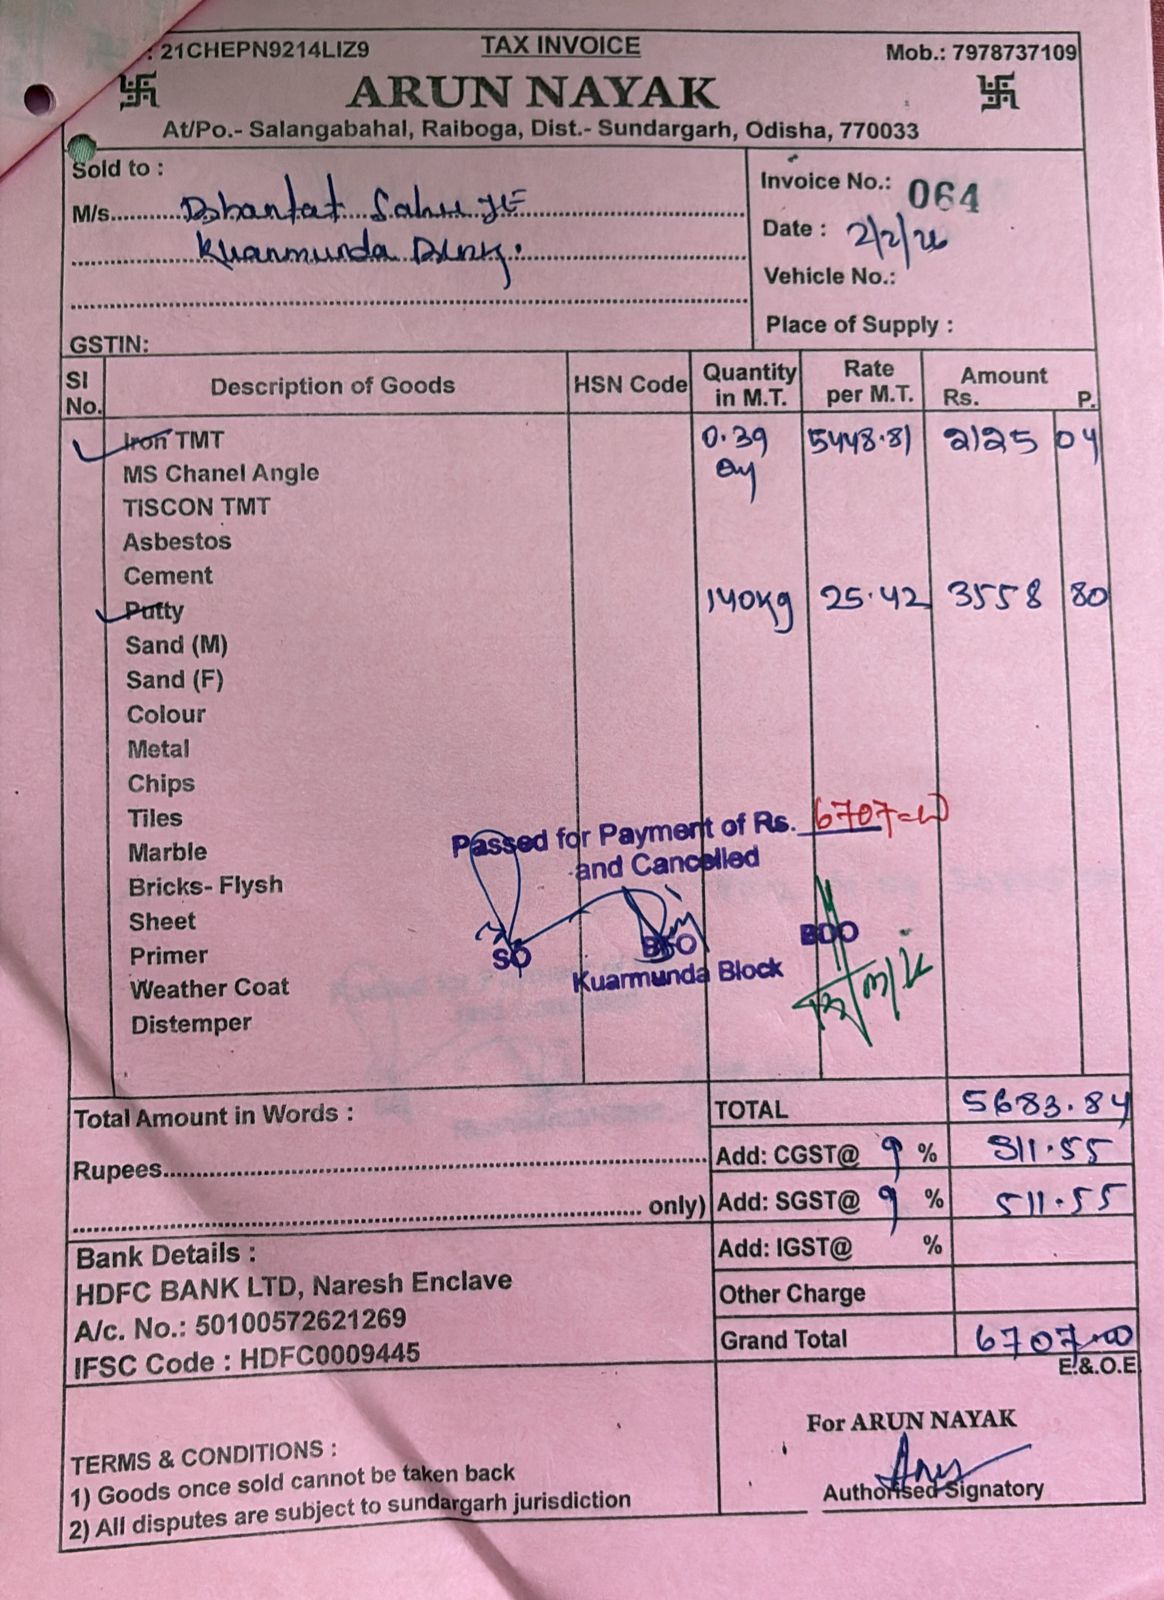 : 21CHEPN9214LIZ9
TAX INVOICE
Mob.: 7978737109
ARUN NAYAK
At/Po.- Salangabahal, Raiboga, Dist.- Sundargarh, Odisha, 770033
Sold to :
M/s. Sahu JE
Kuanmunda
GSTIN:
Invoice No.: 064
Date : 2/2/26
Vehicle No.:
Place of Supply :
Sl No. Description of Goods HSN Code Quantity in M.T. Rate per M.T. Amount Rs. P.
Iron TMT 0.39 5448.81 2125 04
MS Chanel Angle
TISCON TMT
Asbestos
Cement
Putty 140kg 25.42 3558 80
Sand (M)
Sand (F)
Colour
Metal
Chips
Tiles
Marble
Bricks- Flysh
Sheet
Primer
Weather Coat
Distemper
Passed for Payment of Rs. 6707=00
and Cancelled
SO
BDO
Kuarmunda Block
Total Amount in Words :
Rupees
only)
TOTAL 5683.84
Add: CGST@ 9 % 511.55
Add: SGST@ 9 % 511.55
Add: IGST@ %
Other Charge
Grand Total 6707.00
E.&.O.E
Bank Details :
HDFC BANK LTD, Naresh Enclave
A/c. No.: 50100572621269
IFSC Code : HDFC0009445
TERMS & CONDITIONS :
1) Goods once sold cannot be taken back
2) All disputes are subject to sundargarh jurisdiction
For ARUN NAYAK
Authorised Signatory